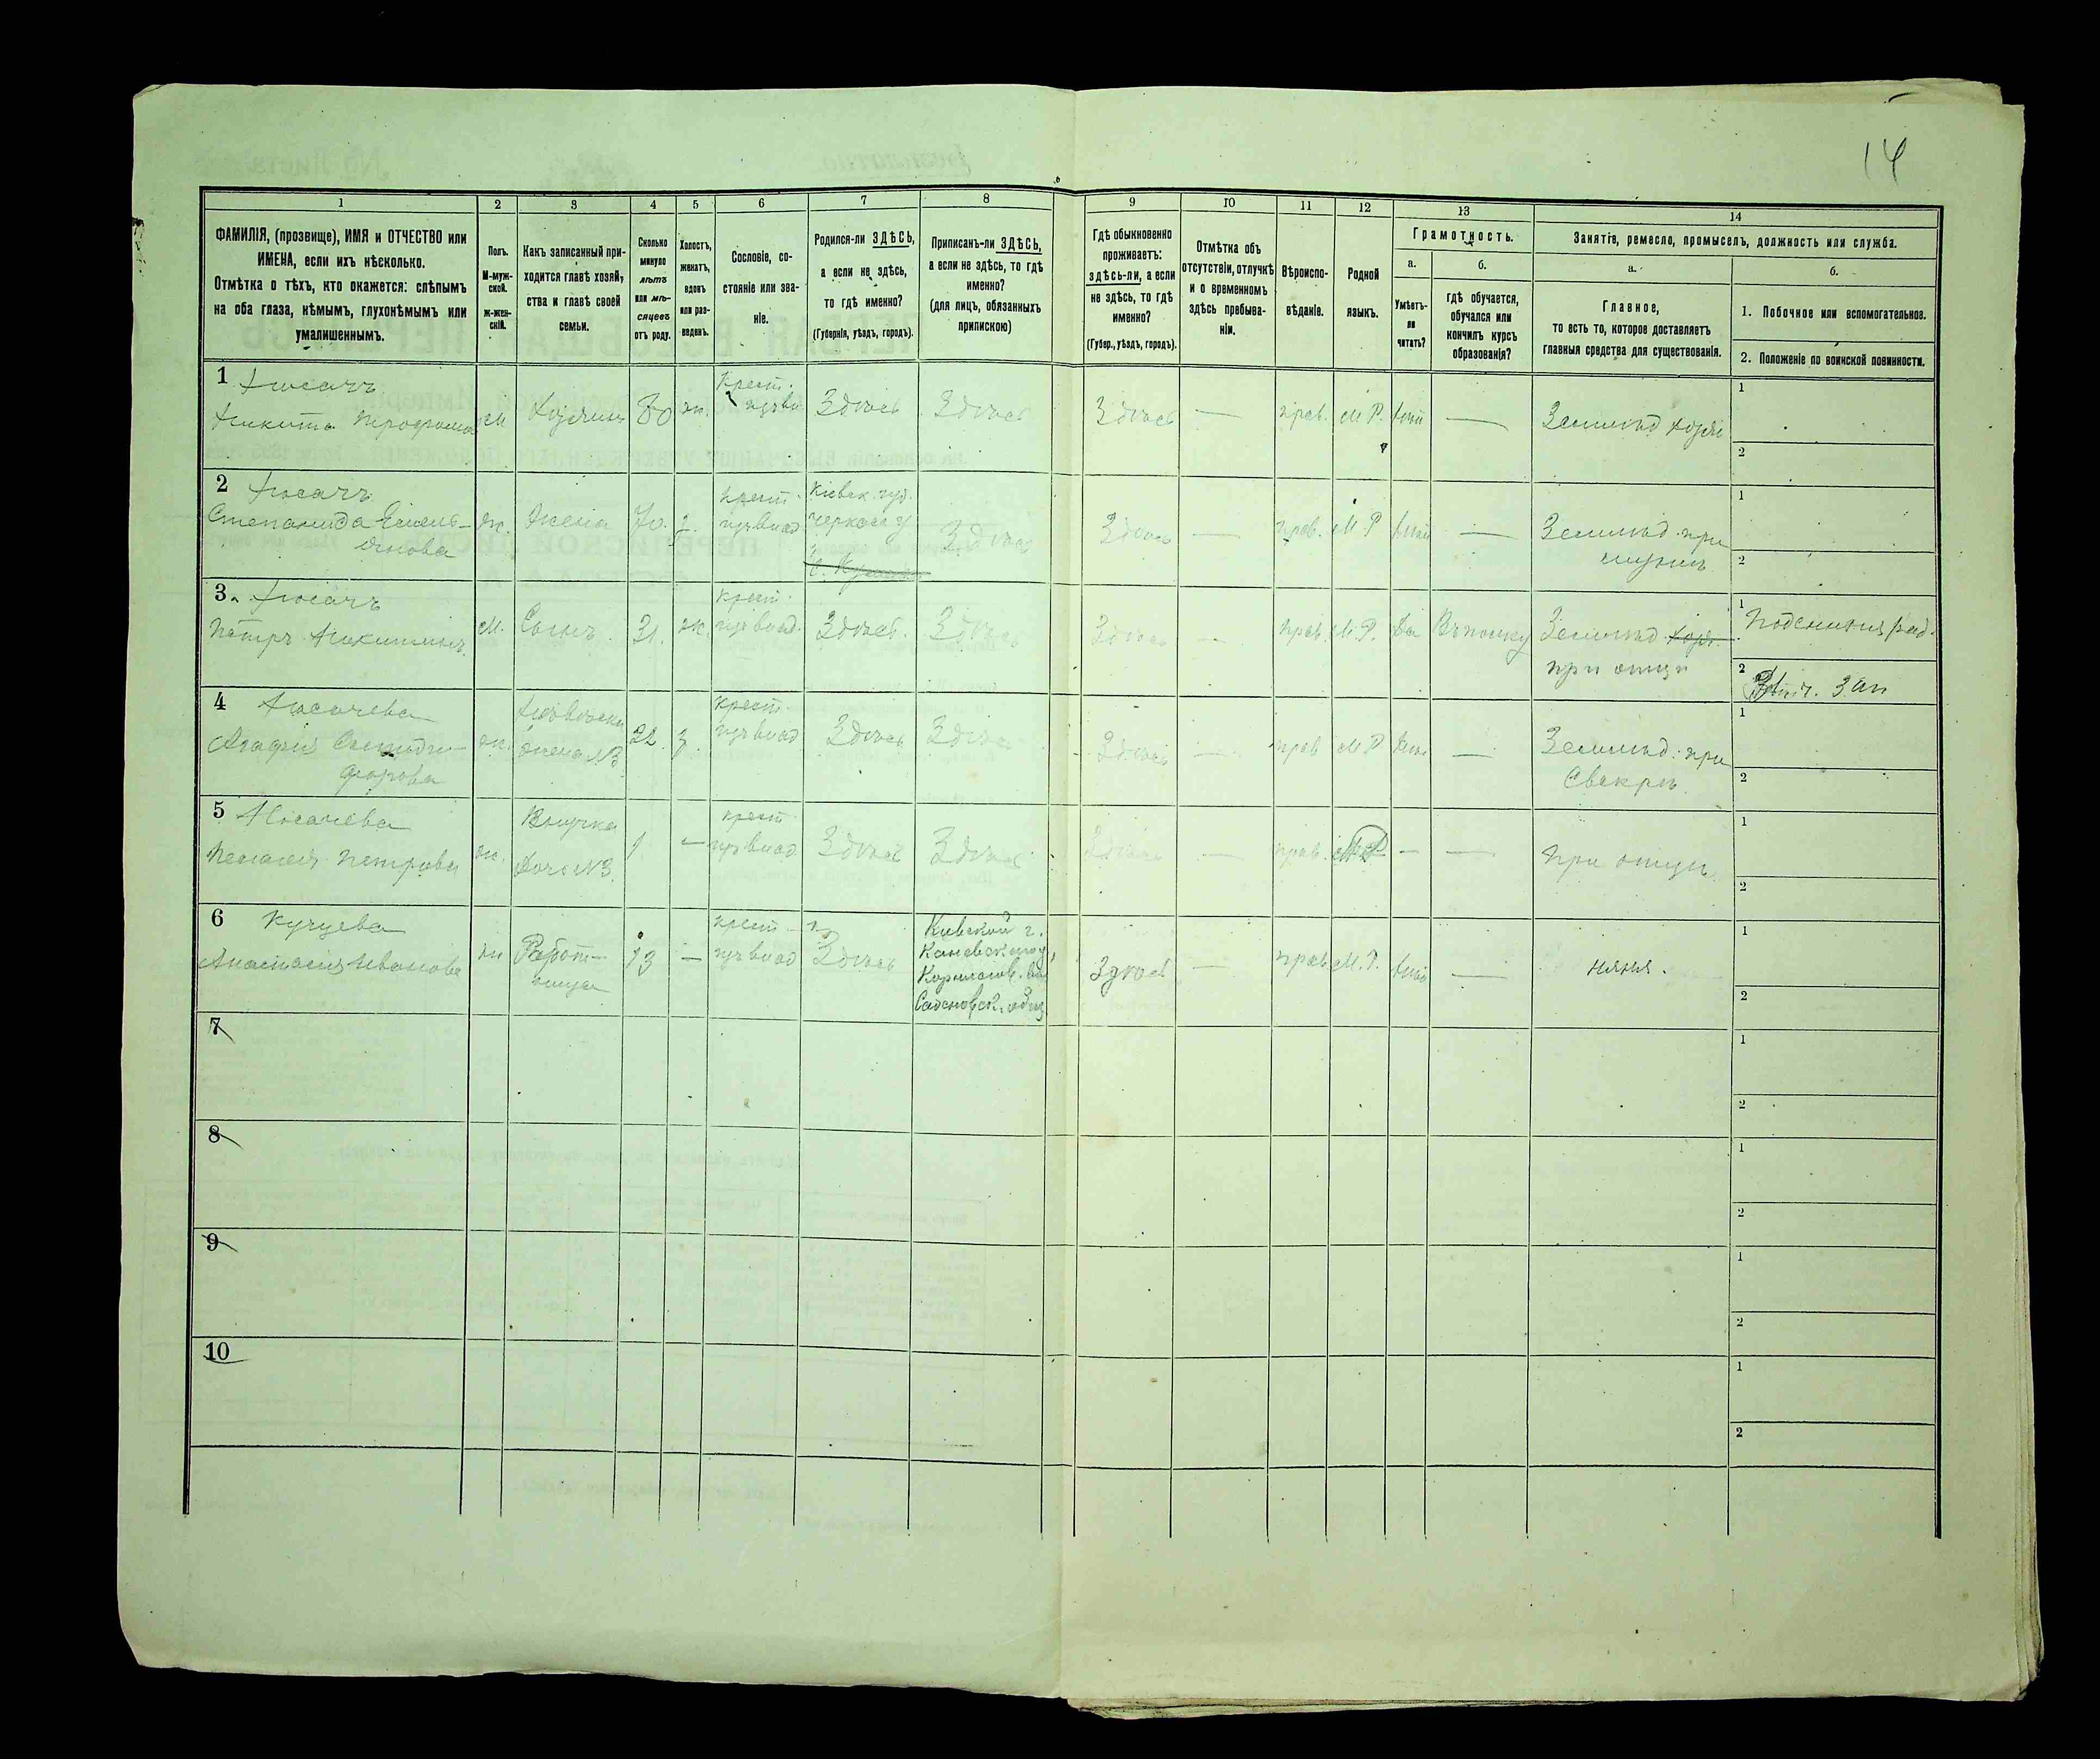 14
1
2
3
4
5
6
7
8
9
10
11
12
13
14
ФАМИЛІЯ, (прозвище), ИМЯ и ОТЧЕСТВО или
ИМЕНА, если ихъ нѣсколько.
Отмѣтка о тѣхъ, кто окажется: слѣпымъ
на оба глаза, нѣмымъ, глухонѣмымъ или
умалишеннымъ.
Полъ.
М-муж-
ской.
ж-жен-
скій.
Какъ записанный при-
ходится главѣ хозяй-
ства и главѣ своей
семьи.
Сколько
минуло
лѣтъ
или мѣ-
сяцевъ
отъ роду.
Холостъ,
женатъ,
вдовъ
или раз-
веденъ.
Сословіе, со-
стояніе или зва-
ніе.
Родился-ли ЗДѢСЬ,
а если не здѣсь,
то гдѣ именно?
(Губернія, уѣздъ, городъ).
Приписанъ-ли ЗДѢСЬ,
а если не здѣсь, то гдѣ
именно?
(для лицъ, обязанныхъ
припискою)
Гдѣ обыкновенно
проживаетъ:
здѣсь-ли, а если
не здѣсь, то гдѣ
именно?
(Губер., уѣздъ, городъ).
Отмѣтка объ
отсутствіи, отлучкѣ
и о временномъ
здѣсь пребыва-
ніи.
Вѣроиспо-
вѣданіе.
Родной
языкъ.
Грамотность.
а.
Умѣетъ-
ли
читать?
б.
гдѣ обучается,
обучался или
кончилъ курсъ
образованія?
Занятіе, ремесло, промыселъ, должность или служба.
а.
Главное,
то есть то, которое доставляетъ
главныя средства для существованія.
б.
1. Побочное или вспомогательное.
2. Положеніе по воинской повинности.
1 Носачъ
Никита
м
80
ж.
Крест.
Здѣсь
Здѣсь
Здѣсь
—
прав.
М Р.
—
Землед
1
2
2 Носачъ
Степанида Емель-
янова
ж.
Жена
70.
з.
крест.
Кіевск. губ.
Здѣсь
Здѣсь
—
прав.
М. Р
—
Землед. при
1
2
3 Носачъ
Петръ Никитинъ
м.
Сынъ.
31.
ж.
крест.
Здѣсь.
Здѣсь
Здѣсь
—
прав.
М. Р.
Да
Землед
при отцѣ
1
2
4 Носачева
ж.
жена №3
22.
з.
крест.
Здѣсь
Здѣсь
Здѣсь
—
прав
М Р
—
Землед. при
Свекрѣ
1
2
5 Носачева
Пелагея Петрова
ж.
Внучка
Дочь №3.
1
—
крест.
Здѣсь
Здѣсь
Здѣсь
—
прав.
М Р
—
—
при отцѣ
1
2
6
Анастасия Иванова
ж
Работ-
ница
13
—
крест
Здѣсь
Киевской г.
Здѣсь
—
прав
М. Р.
—
няня.
1
2
7
1
2
8
1
2
9
1
2
10
1
2